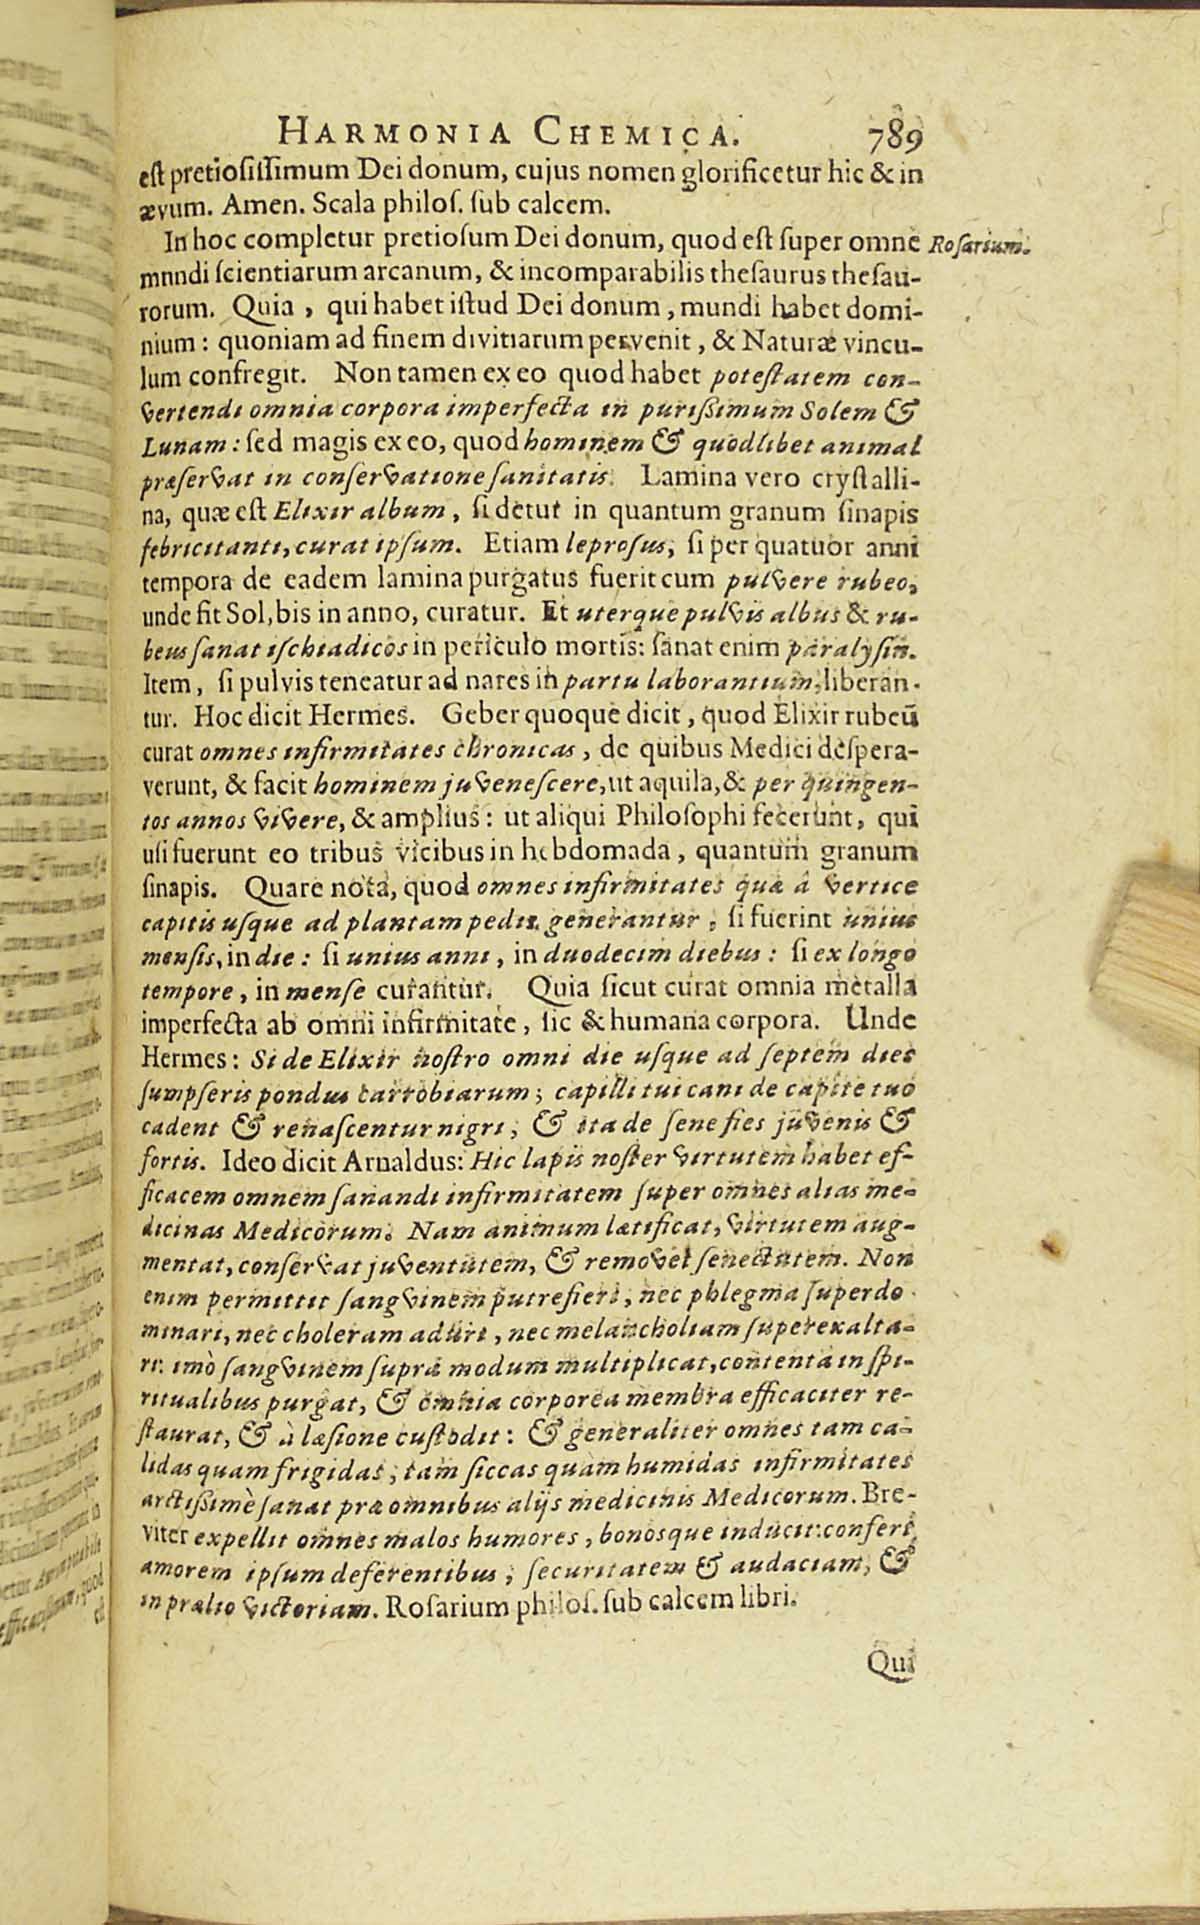 HARMONIA CHEMICA. 789
est pretiosissimum Dei donum, cujus nomen glorificetur hic & in
ævum. Amen. Scala philos. sub calcem.
In hoc completur pretiosum Dei donum, quod est super omnē Rosarium.
mnndi scientiarum arcanum, & incomparabilis thesaurus thesau-
rorum. Quia, qui habet istud Dei donum, mundi habet domi-
nium: quoniam ad finem divitiarum pervenit, & Naturæ vincu-
lum confregit. Non tamen ex eo quod habet potestatem con-
vertendi omnia corpora imperfecta in purissimum Solem &
Lunam: sed magis ex eo, quod hominem & quodlibet animal
præservat in conservatione sanitatis. Lamina vero crystalli-
na, quæ est Elixir album, si detur in quantum granum sinapis
febricitanti, curat ipsum. Etiam leprosus, si per quatuor anni
tempora de eadem lamina purgatus fuerit cum pulvere rubeo,
unde fit Sol, bis in anno, curatur. Et uterque pulvis albus & ru-
beus sanat ischiadicos in periculo mortis: sanat enim paralysin.
Item, si pulvis teneatur ad nares in partu laborantium, liberan-
tur. Hoc dicit Hermes. Geber quoque dicit, quod Elixir rubeū
curat omnes infirmitates chronicas, de quibus Medici despera-
verunt, & facit hominem juvenescere, ut aquila, & per quingen-
tos annos vivere, & amplius: ut aliqui Philosophi fecerunt, qui
usi fuerunt eo tribus vicibus in hebdomada, quantum granum
sinapis. Quare nota, quod omnes infirmitates quæ â vertice
capitis usque ad plantam pedis generantur, si fuerint unius
mensis, in die: si unius anni, in duodecim diebus: si ex longo
tempore, in mense curantur. Quia sicut curat omnia metalla
imperfecta ab omni infirmitate, sic & humana corpora. Unde
Hermes: Si de Elixir nostro omni die usque ad septem dies
sumpseris pondus carrobiarum; capilli tui cani de capite tuo
cadent & renascentur nigri, & ita de sene fies juvenis &
fortis. Ideo dicit Arnaldus: Hic lapis noster virtutem habet ef-
ficacem omnem sanandi infirmitatem super omnes alias me-
dicinas Medicorum. Nam animum lætificat, virtutem aug-
mentat, conservat juventutem, & removet senectutem. Non
enim permittit sangvinem putrefieri, nec phlegma superdo-
minari, nec choleram aduri, nec melancholiam superexalta-
ri: imò sangvinem supra modum multiplicat, contenta in spi-
ritualibus purgat, & omnia corporea membra efficaciter re-
staurat, & à læsione custodit: & generaliter omnes tam ca-
lidas quam frigidas, tam siccas quam humidas infirmitates
arctissimè sanat præ omnibus alijs medicinis Medicorum. Bre-
viter expellit omnes malos humores, bonosque inducit: confert
amorem ipsum deferentibus, securitatem & audaciam, &
in prælio victoriam. Rosarium philos. sub calcem libri.
Qui